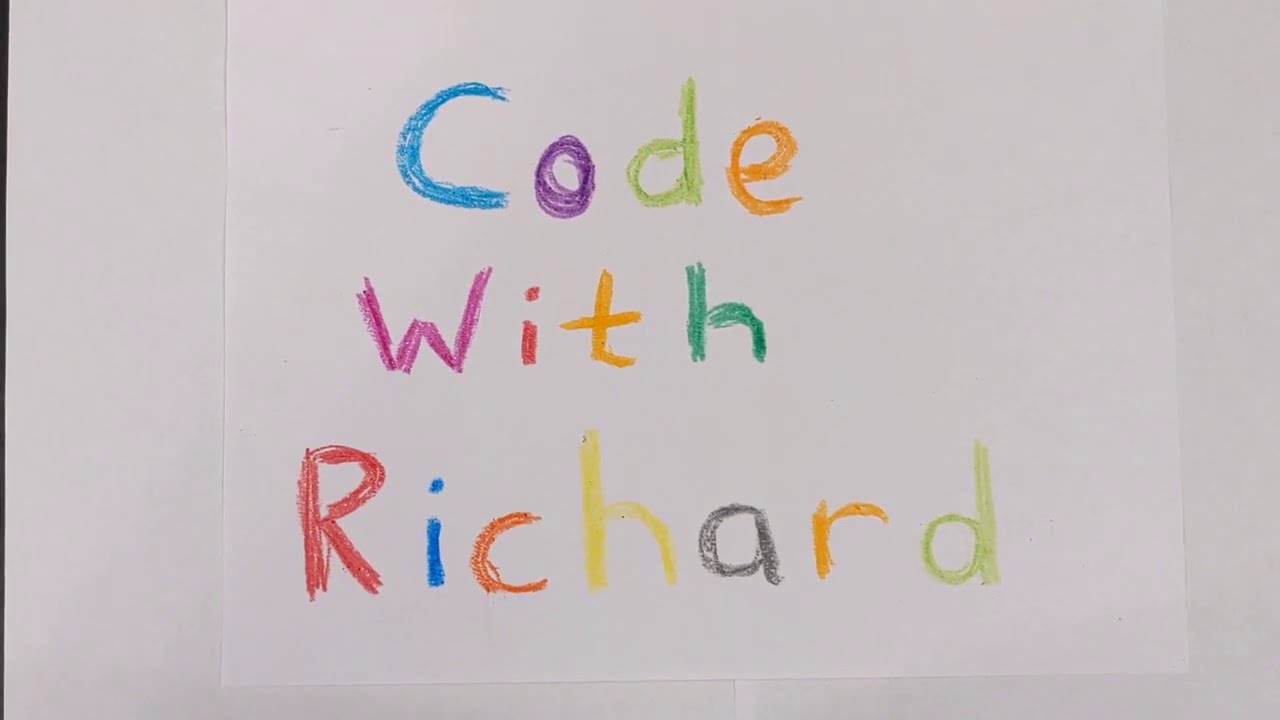 Code
With
Richard